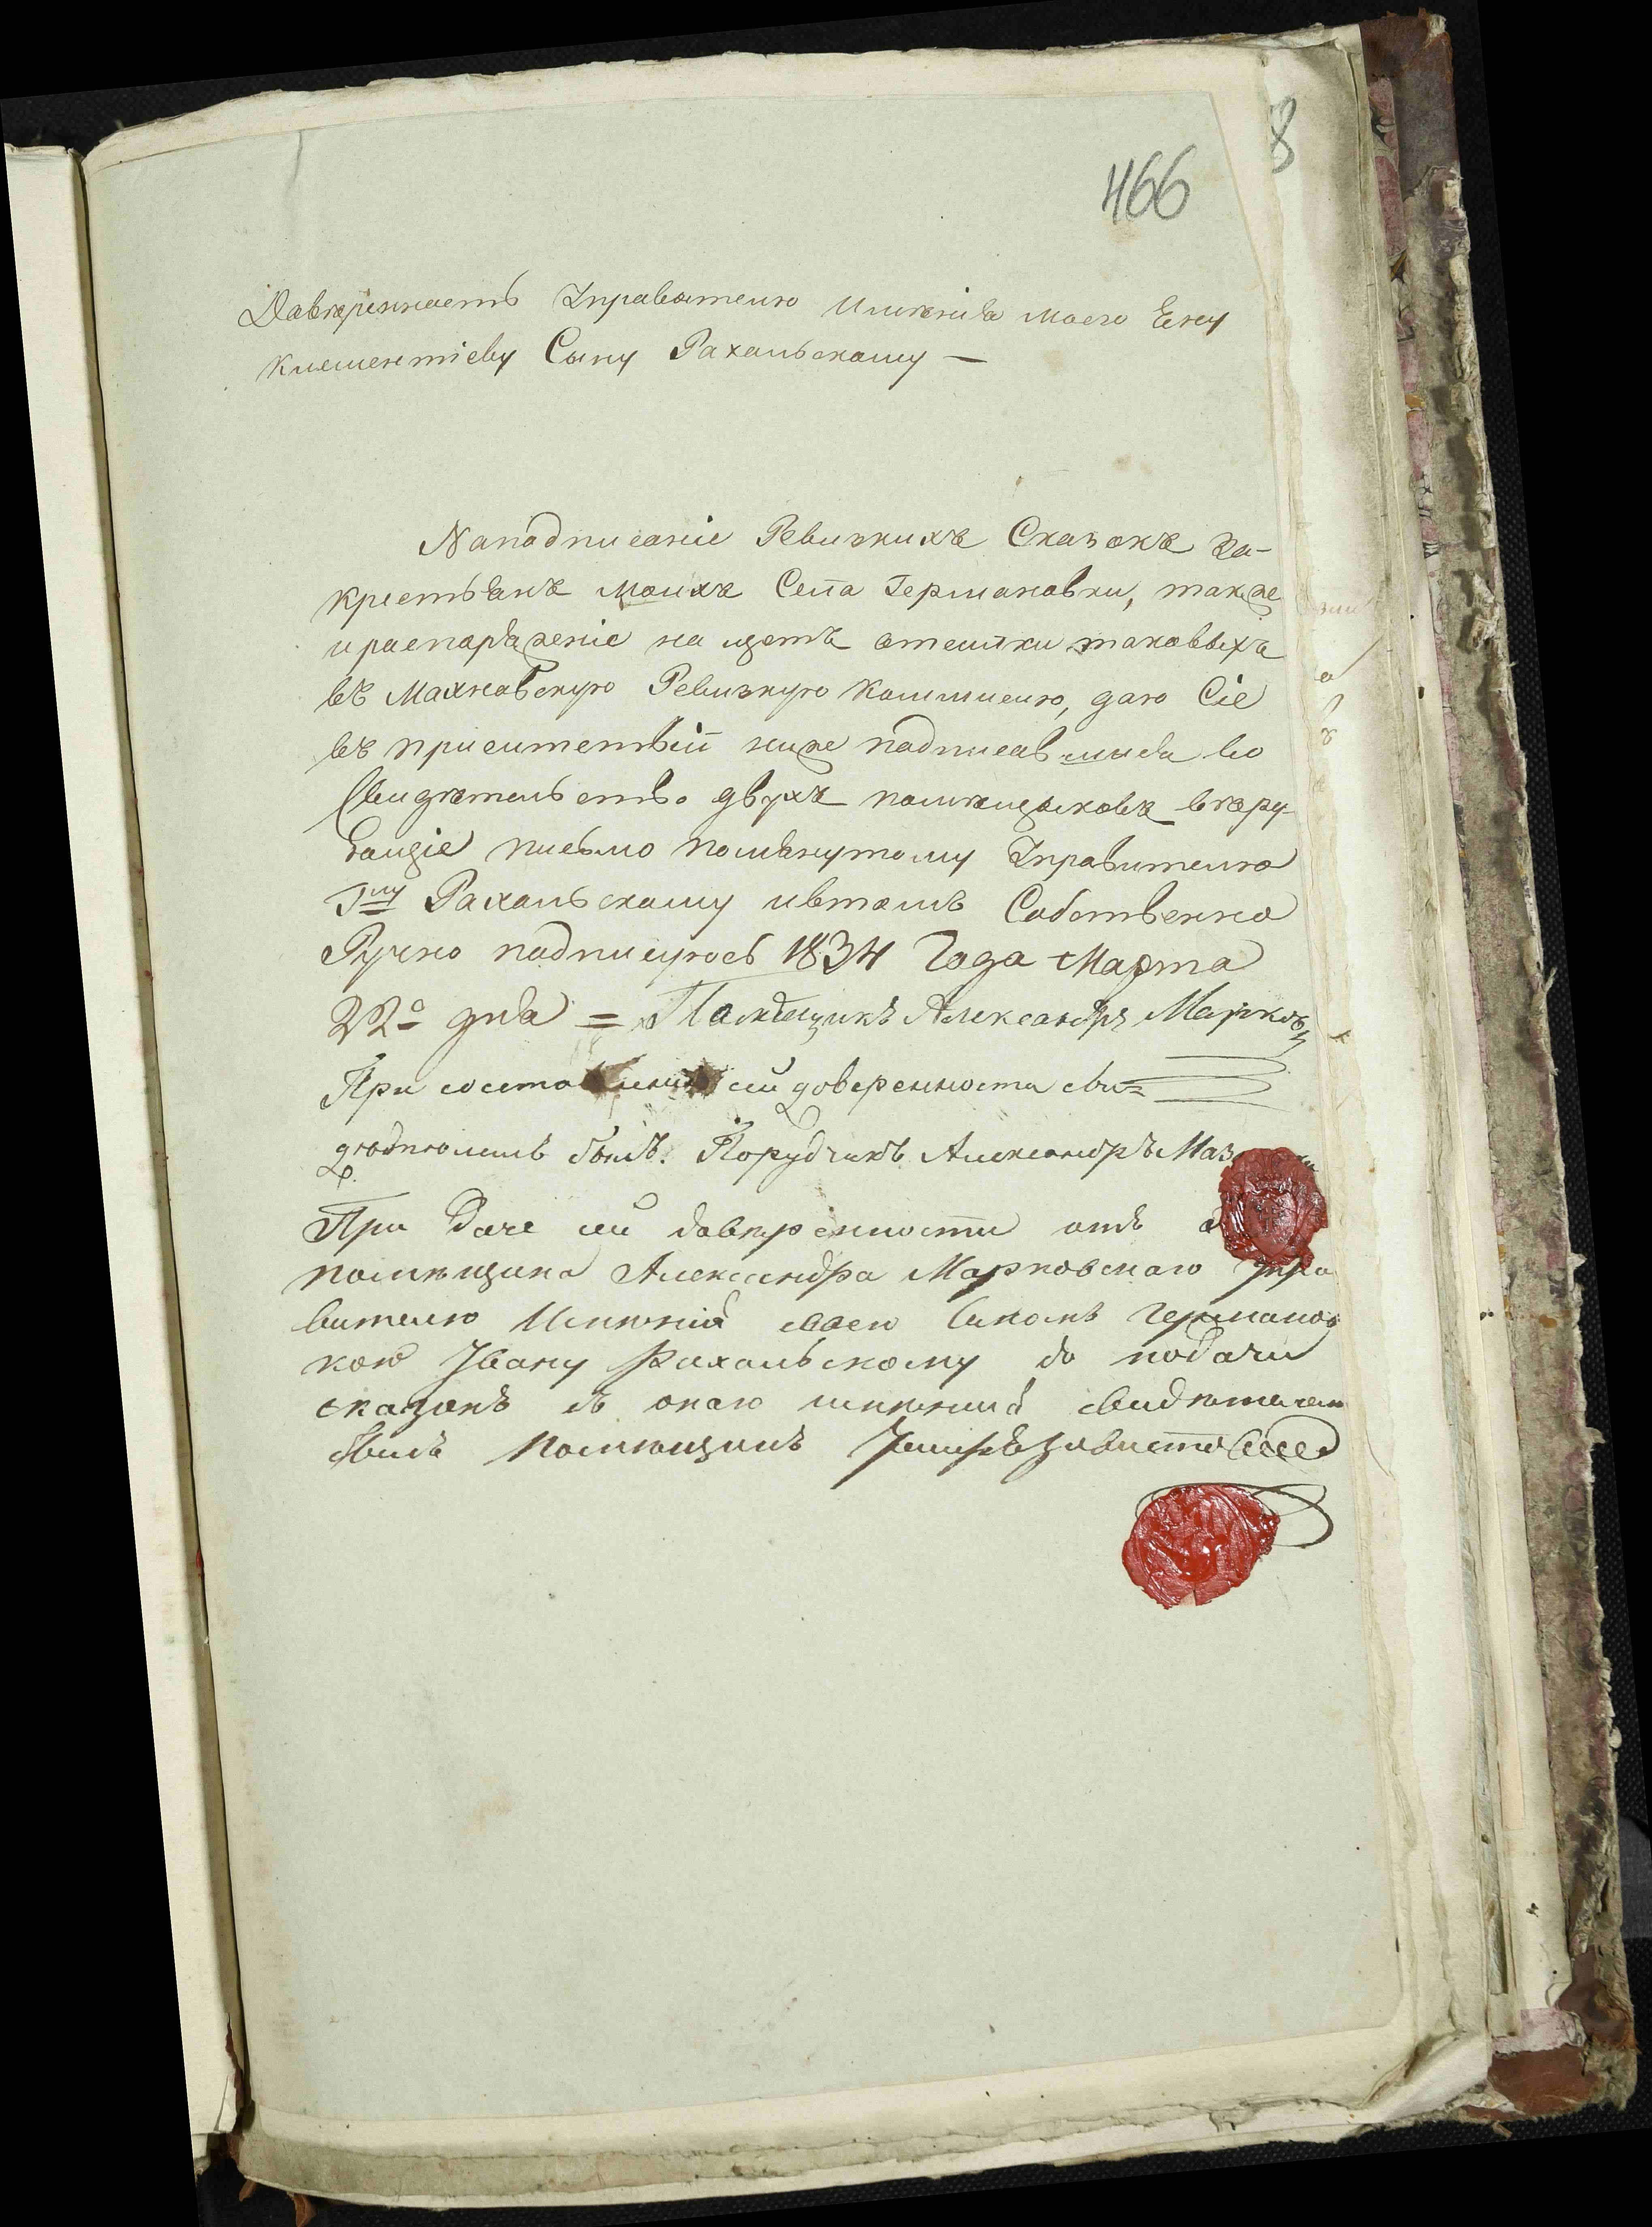 466
8
Давѣренность Управителю Имѣнія моего
Клементіеву Сыну Рахальскому —
Наподписаніе Ревизкихъ Сказокъ за-
крестьянъ моихъ Села Германовки, также
ираспоряженіе на щетъ отсилки таковыхъ
въ Махновскую Ревизкую Коммисію, даю Сіе
въ приситствіи ниже подписавшихся во
Свидѣтельство двухъ помѣщыковъ вѣру-
ющіе письмо помянутому Управителю
Гну Рахальскому ивтомъ Собственно
Ручно подписуюсь 1834 Года Марта
22о дня = Помѣщикъ Александръ Марковъ
При составленіи сей доверенности сви=
дѣтелемъ былъ. Порудчикъ Александръ Маз
При даче сей довѣренности отъ
помѣщика Александра Марковскаго Упра
вителю Имѣнія своего Силомъ Германов
кою Ивану Рахальскому до подачи
сказокъ съ онаго имѣнія свидѣтелем
былъ Помѣщикъ